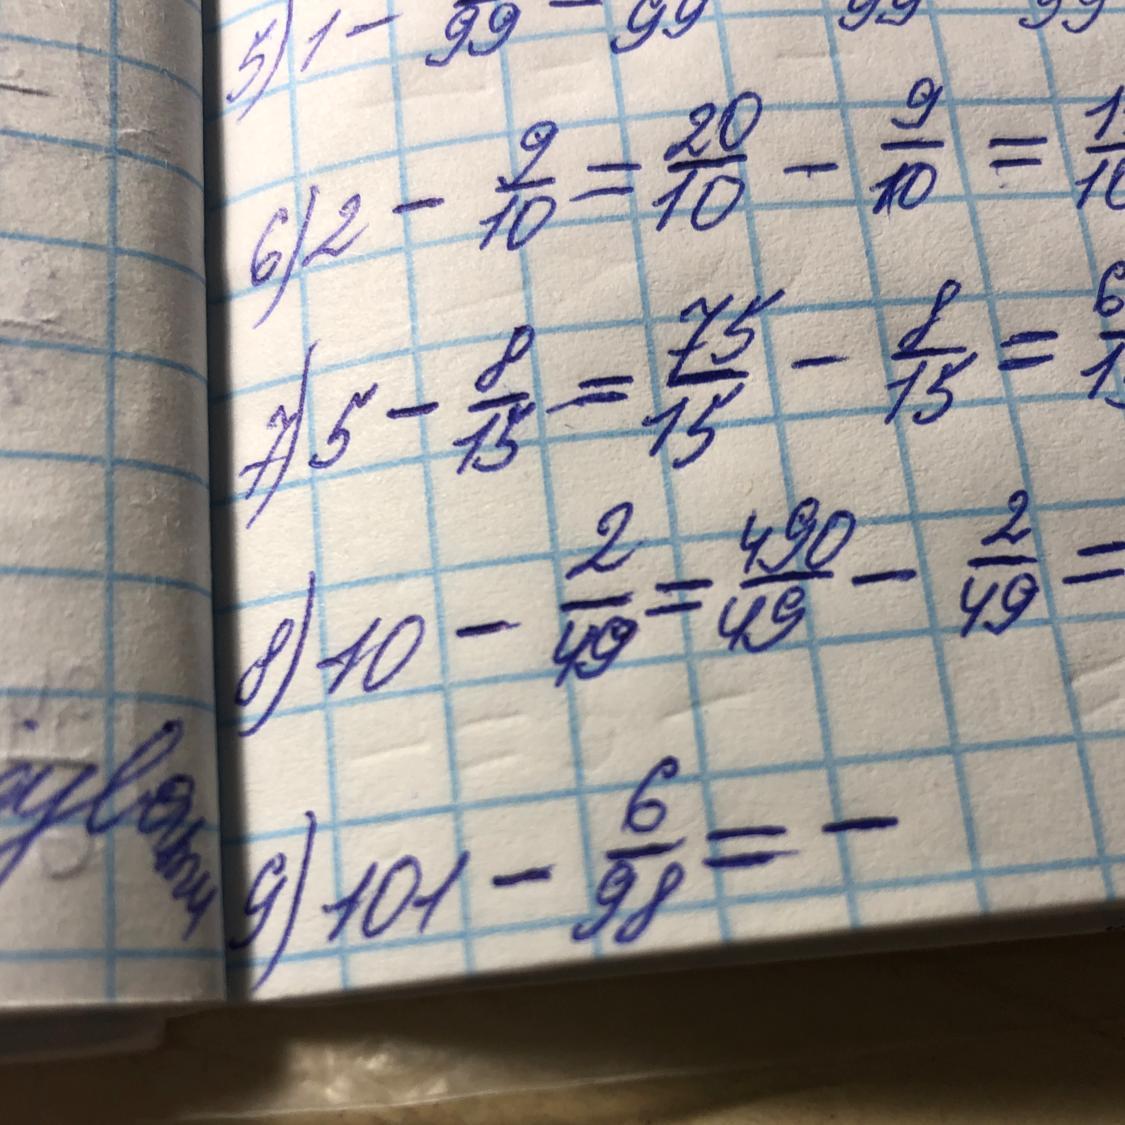 5) 1 - /99 = /99 /99 /99
6) 2 - 9/10 = 20/10 - 9/10 =
7) 5 - 8/15 = 75/15 - 8/15 =
8) 10 - 2/49 = 490/49 - 2/49 =
9) 101 - 6/98 = -